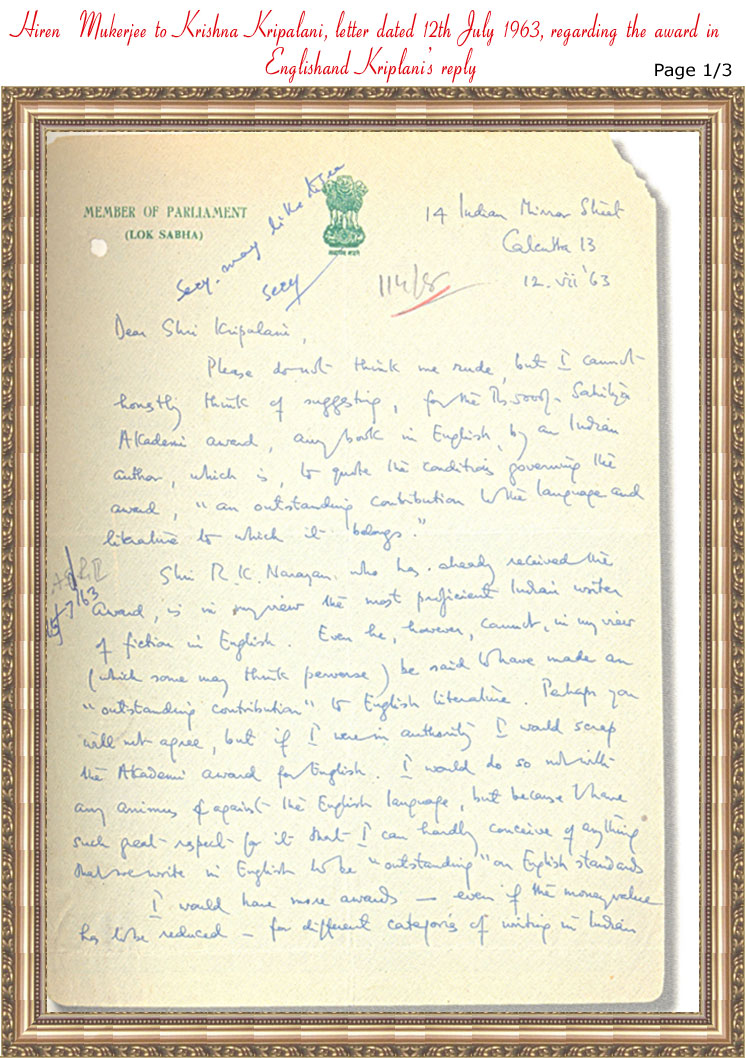 Hiren Mukerjee to Krishna Kripalani, letter dated 12th July 1963, regarding the award in
Englishand Kriplani's reply
Page 1/3
MEMBER OF PARLIAMENT
(LOK SABHA)
Secy. may like to see
Secy
114/8
14 Indian Mirror Street
Calcutta 13
12. vii '63
Dear Shri Kripalani,
Please do not think me rude, but I cannot
honestly think of suggesting, for the Rs. 5000/- Sahitya
Akademi award, any book in English, by an Indian
author, which is, to quote the conditions governing the
award, "an outstanding contribution to the language and
literature to which it belongs."
Shri R. K. Narayan, who has already received the
award, is in my view the most proficient Indian writer
of fiction in English. Even he, however, cannot, in my view
(which some may think perverse) be said to have made an
"outstanding contribution" to English literature. Perhaps you
will not agree, but if I were in authority I would scrap
the Akademi award for English. I would do so not with
any animus against the English language, but because I have
such great respect for it that I can hardly conceive of anything
that we write in English to be "outstanding" on English standards
I would have more awards — even if the money value
has to be reduced — for different categories of writing in Indian
15/7/63